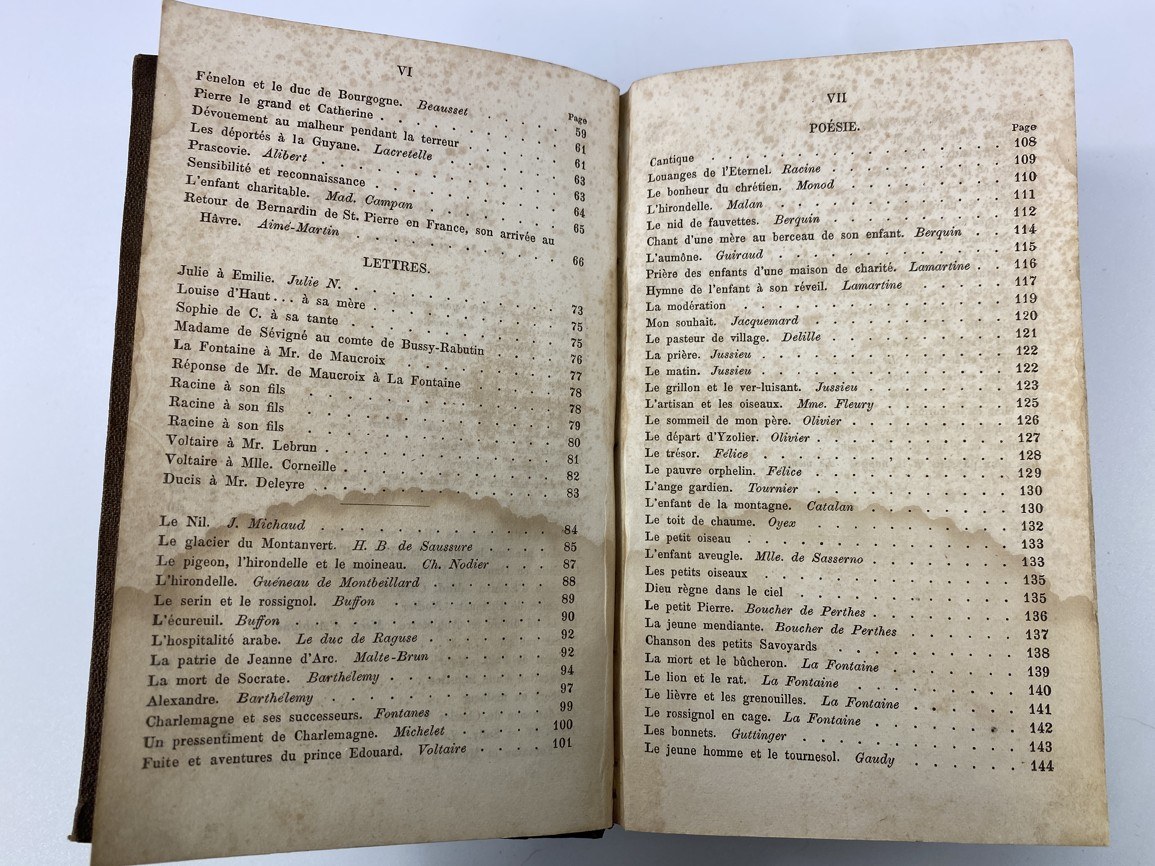 VI
Page
Fénelon et le duc de Bourgogne. Beausset . . . . 59
Pierre le grand et Catherine . . . . . . . . 61
Dévouement au malheur pendant la terreur . . . . . 61
Les déportés à la Guyane. Lacretelle . . . . . . 63
Prascovie. Alibert . . . . . . . . . 63
Sensibilité et reconnaissance . . . . . . . . 64
L'enfant charitable. Mad. Campan . . . . . . 65
Retour de Bernardin de St. Pierre en France, son arrivée au
Hâvre. Aimé-Martin . . . . . . . . 66
LETTRES.
Julie à Emilie. Julie N. . . . . . . . . 73
Louise d'Haut... à sa mère . . . . . . . . 75
Sophie de C. à sa tante . . . . . . . . 75
Madame de Sévigné au comte de Bussy-Rabutin . . . . 76
La Fontaine à Mr. de Maucroix . . . . . . . 77
Réponse de Mr. de Maucroix à La Fontaine . . . . . 78
Racine à son fils . . . . . . . . . 78
Racine à son fils . . . . . . . . . 79
Racine à son fils . . . . . . . . . 80
Voltaire à Mr. Lebrun . . . . . . . . . 81
Voltaire à Mlle. Corneille . . . . . . . . 82
Ducis à Mr. Deleyre . . . . . . . . . 83
Le Nil. J. Michaud . . . . . . . . . 84
Le glacier du Montanvert. H. B. de Saussure . . . . 85
Le pigeon, l'hirondelle et le moineau. Ch. Nodier . . . 87
L'hirondelle. Guéneau de Montbeillard . . . . . 88
Le serin et le rossignol. Buffon . . . . . . . 89
L'écureuil. Buffon . . . . . . . . . 90
L'hospitalité arabe. Le duc de Raguse . . . . . 92
La patrie de Jeanne d'Arc. Malte-Brun . . . . . 92
La mort de Socrate. Barthélemy . . . . . . . 94
Alexandre. Barthélemy . . . . . . . . 97
Charlemagne et ses successeurs. Fontanes . . . . . 99
Un pressentiment de Charlemagne. Michelet . . . . 100
Fuite et aventures du prince Edouard. Voltaire . . . . 101
VII
POÉSIE.
Page
Cantique . . . . . . . . . . 108
Louanges de l'Eternel. Racine . . . . . . . 109
Le bonheur du chrétien. Monod . . . . . . . 110
L'hirondelle. Malan . . . . . . . . . 111
Le nid de fauvettes. Berquin . . . . . . . 112
Chant d'une mère au berceau de son enfant. Berquin . . 114
L'aumône. Guiraud . . . . . . . . . 115
Prière des enfants d'une maison de charité. Lamartine . . 116
Hymne de l'enfant à son réveil. Lamartine . . . . . 117
La modération . . . . . . . . . 119
Mon souhait. Jacquemard . . . . . . . . 120
Le pasteur de village. Delille . . . . . . . 121
La prière. Jussieu . . . . . . . . . 122
Le matin. Jussieu . . . . . . . . . 122
Le grillon et le ver-luisant. Jussieu . . . . . . 123
L'artisan et les oiseaux. Mme. Fleury . . . . . . 125
Le sommeil de mon père. Olivier . . . . . . . 126
Le départ d'Yzolier. Olivier . . . . . . . 127
Le trésor. Félice . . . . . . . . . 128
Le pauvre orphelin. Félice . . . . . . . 129
L'ange gardien. Tournier . . . . . . . . 130
L'enfant de la montagne. Catalan . . . . . . 130
Le toit de chaume. Oyex . . . . . . . . 132
Le petit oiseau . . . . . . . . . 133
L'enfant aveugle. Mlle. de Sasserno . . . . . . 133
Les petits oiseaux . . . . . . . . . 135
Dieu règne dans le ciel . . . . . . . . 135
Le petit Pierre. Boucher de Perthes . . . . . . 136
La jeune mendiante. Boucher de Perthes . . . . . 137
Chanson des petits Savoyards . . . . . . . 138
La mort et le bûcheron. La Fontaine . . . . . . 139
Le lion et le rat. La Fontaine . . . . . . . 140
Le lièvre et les grenouilles. La Fontaine . . . . . 141
Le rossignol en cage. La Fontaine . . . . . . 142
Les bonnets. Guttinger . . . . . . . . 143
Le jeune homme et le tournesol. Gaudy . . . . . 144